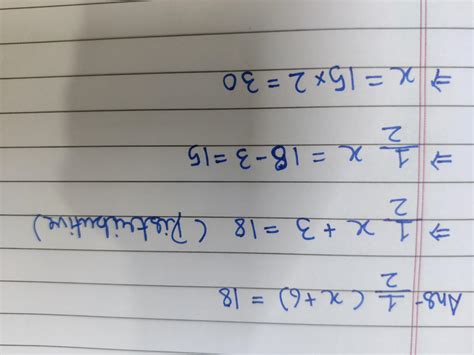 Ans- 1/2 (x+6) = 18
⇒ 1/2 x + 3 = 18 (Distributive)
⇒ 1/2 x = 18-3 = 15
⇒ x = 15×2 = 30